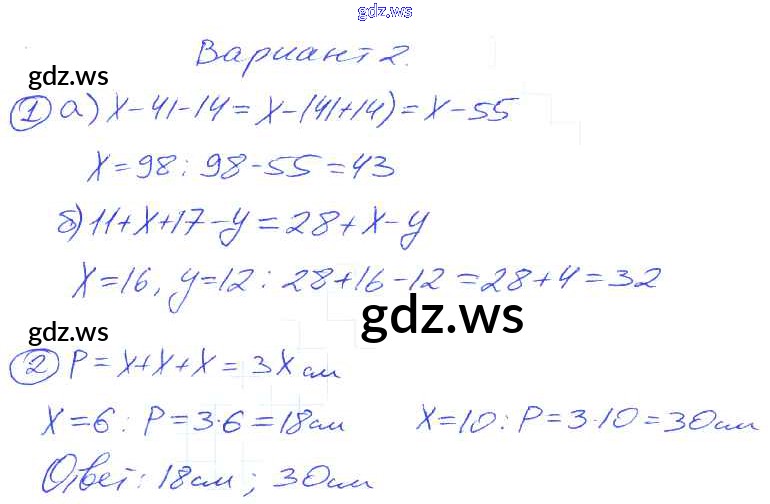 gdz.ws
Вариант 2.
gdz.ws
① а) x-41-14 = x-(41+14) = x-55
x=98: 98-55=43
б) 11+x+17-y = 28+x-y
x=16, y=12: 28+16-12=28+4=32
gdz.ws
gdz.ws
② P=x+x+x= 3x см
x=6: P=3·6=18см x=10: P=3·10=30см
Ответ: 18см; 30см